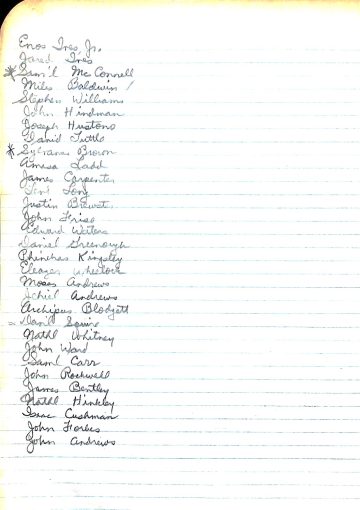 Enos Ives, Jr.
Jared Ives
* Sam'l McConnell
Miles Baldwin
Stephen Williams
John Hindman
Joseph Hustons
David Tuttle
* Sylvanus Brown
Amasa Ladd
James Carpenter
Long
Justin Brewster
John Frise
Edward Waters
Daniel Greenough
Phinehas Kingsley
Eleazer Wheelock
Moses Andrews
Ichiel Andrews
Archipus Blodgett
Dan'l Squire
Nathl Whitney
John Ward
Saml Carr
John Rockwell
James Bentley
Nathl Hinkley
Isaac Cushman
John Forbes
John Andrews